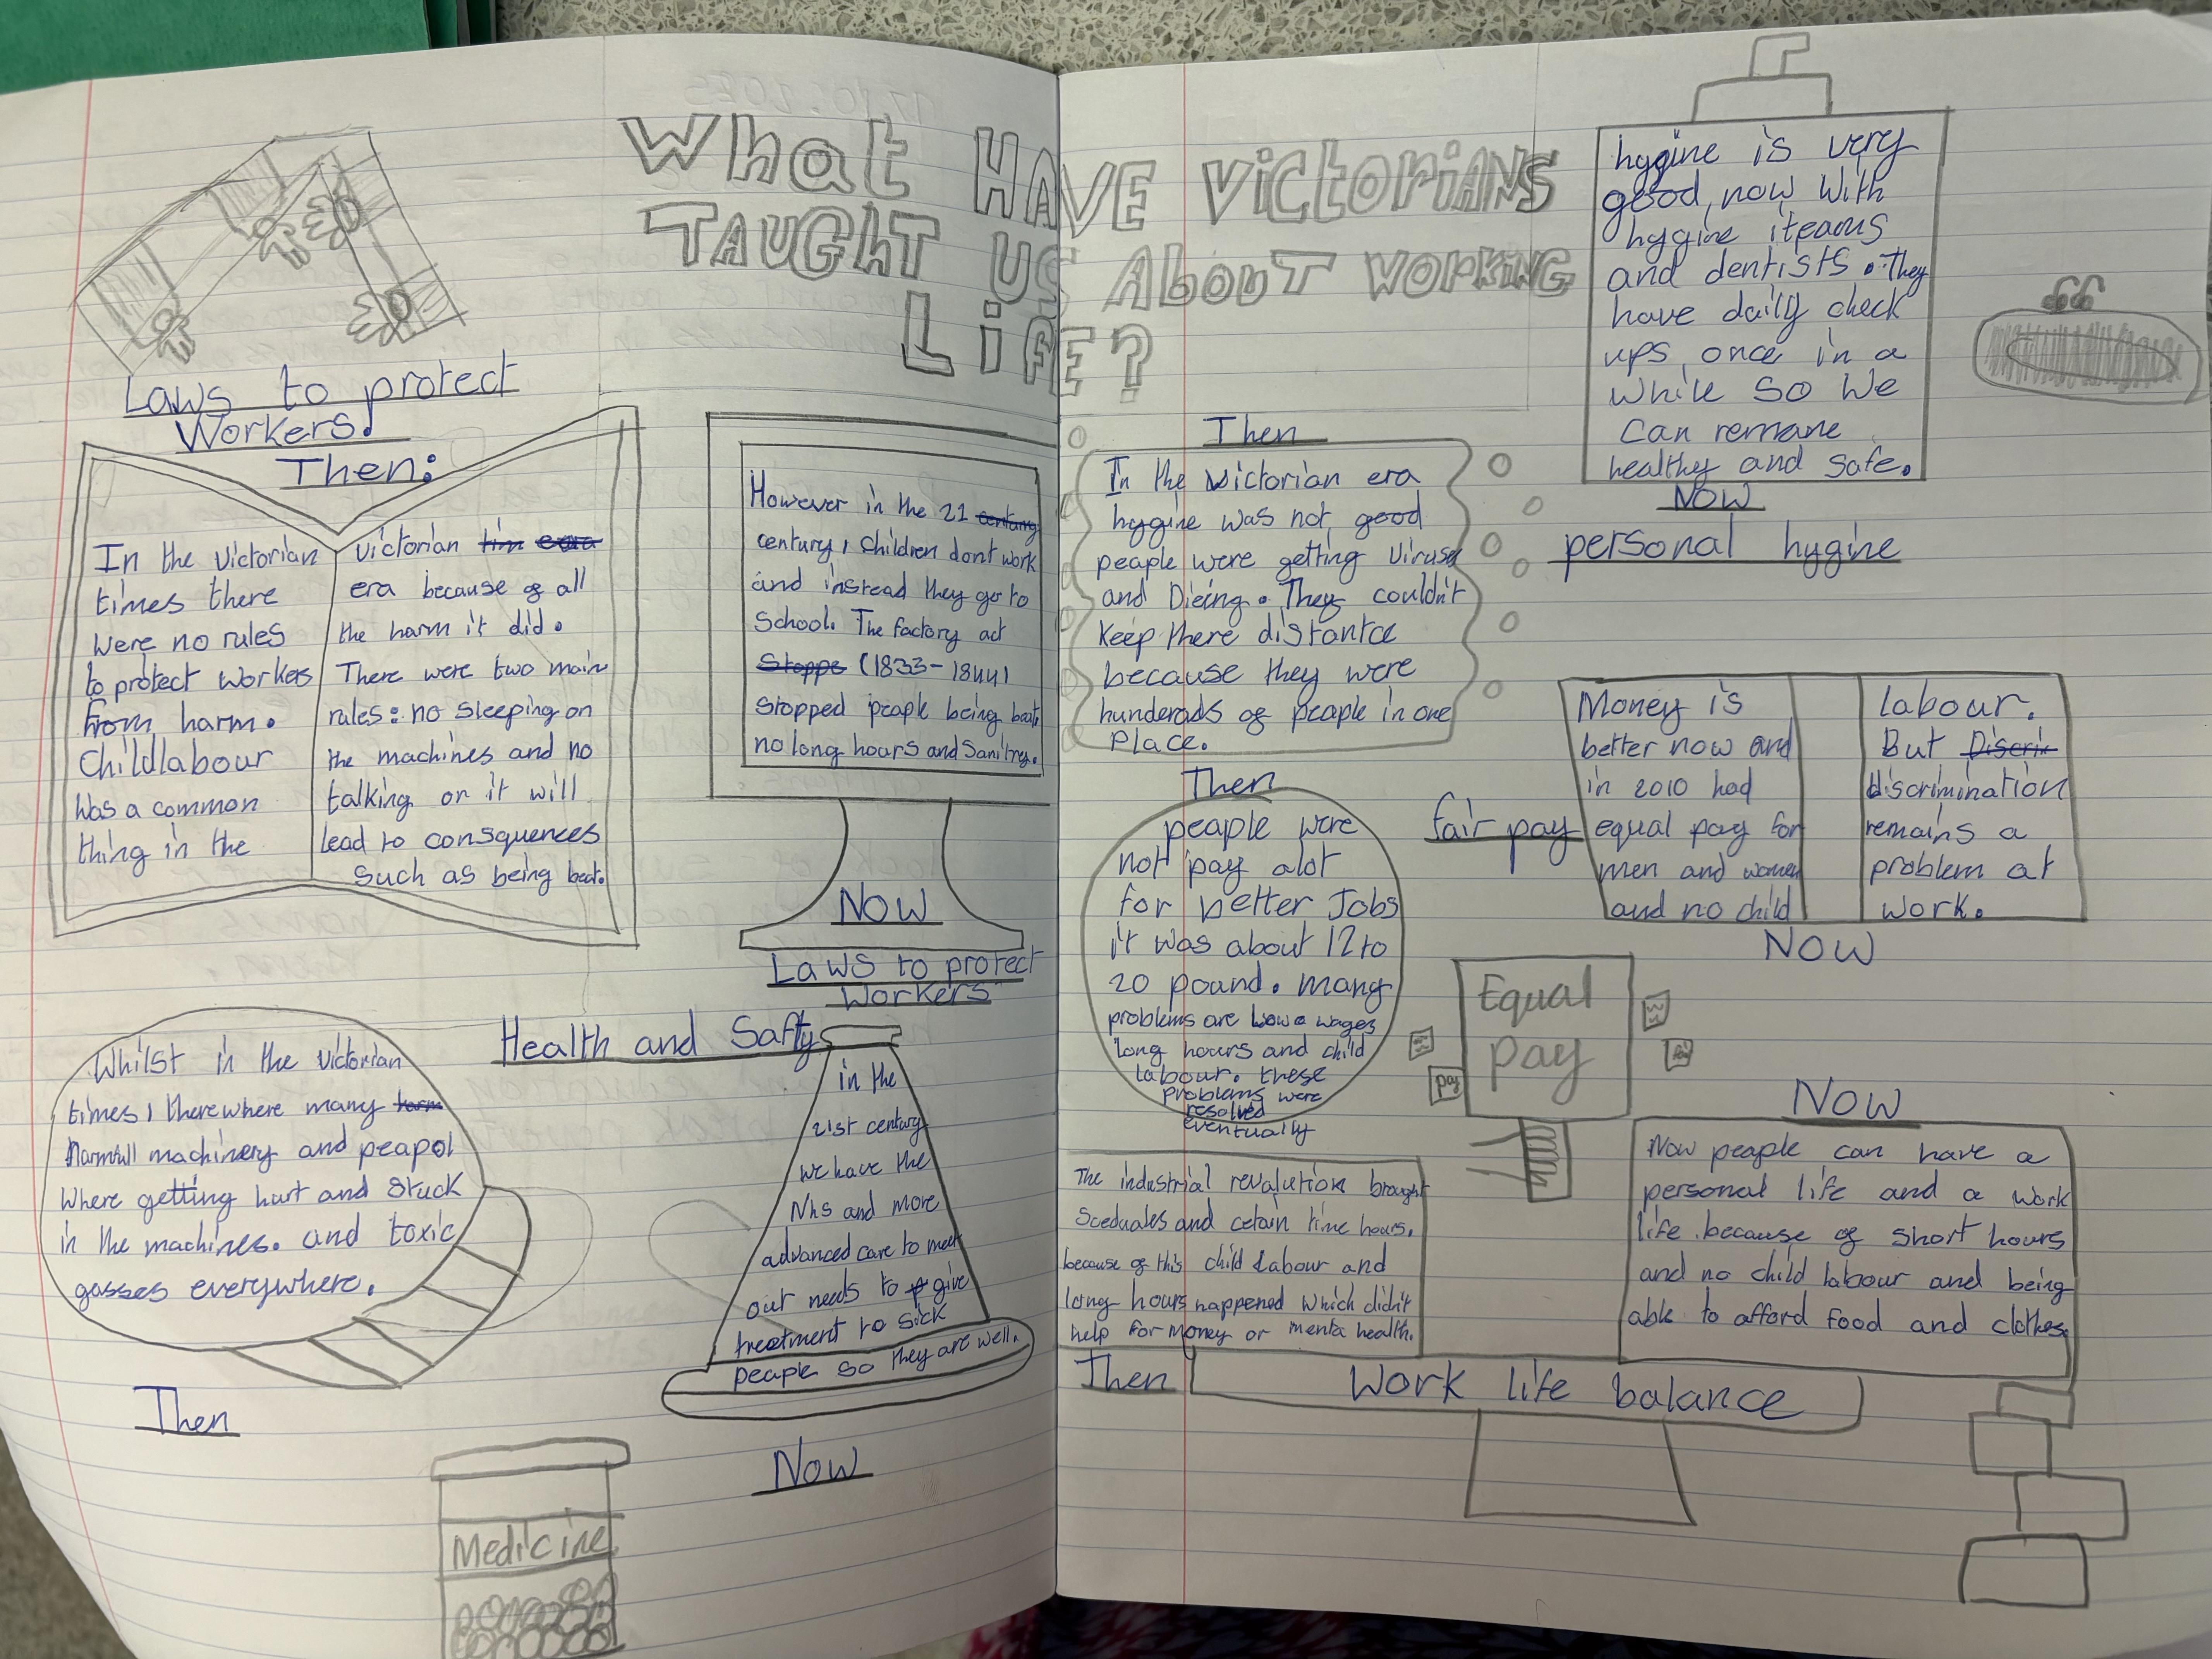 What HAVE VictoriANS
TAUGHT US About WORKING
LiFE?
Laws to protect
Workers.
Then:
In the victorian
times there
were no rules
to protect workers
from harm.
Childlabour
was a common
thing in the
victorian tim eara
era because of all
the harm it did.
There were two main
rules: no sleeping on
the machines and no
talking or it will
lead to consquences
such as being beat.
However in the 21
century, children dont work
and instead they go to
school. The factory act
Stoppe (1833-1844)
stopped peaple being beat,
no long hours and sanitrey.
Now
Laws to protect
Workers
Health and Safty
Whilst in the victorian
times, there where many harm
harmfull machinery and peapol
where getting hurt and stuck
in the machines. and toxic
gasses everywhere.
Then
in the
21st century
we have the
Nhs and more
advanced care to meet
out needs to give
treatment to sick
peaple so they are well.
Now
Medicine
Then
In the victorian era
hygine was not good
peaple were getting viruses
and Dieing. They couldn't
keep there distantce
because they were
hunderads of peaple in one
place.
hygine is very
good now with
hygine iteams
and dentists. They
have daily check
ups, once in a
while so we
can remane
healthy and safe.
Now
personal hygine
Then
peaple were
not pay alot
for better Jobs
it was about 12 to
20 pound. many
problems are low wages
long hours and child
labour. these
problems were
resolved
eventually
fair pay
Money is
better now and
in 2010 had
equal pay for
men and women
and no child
labour.
But Discri
discrimination
remains a
problem at
work.
Now
Equal
pay
pay
The industrial revalution brought
sceduales and cetain time hours,
because of this child labour and
long hours happened which didn't
help for money or menta health.
Then
Now
Now peaple can have a
personal life and a work
life because of short hours
and no child labour and being
able to afford food and clothes.
Work life balance